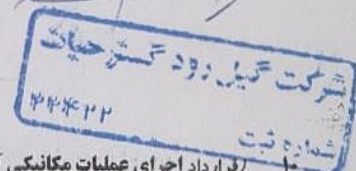 شرکت گیل رود گستر حیات
شماره ثبت
۲۲۴۲۲
قرارداد اجرای عملیات مکانیکی